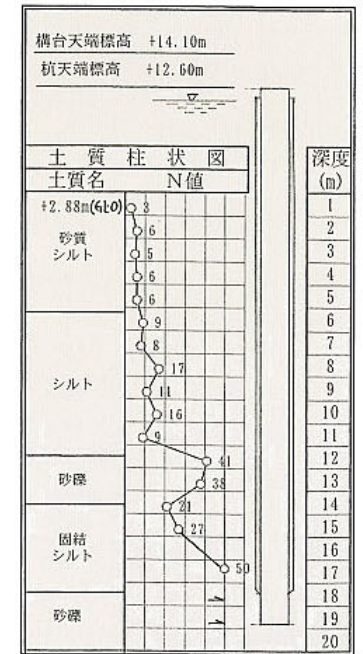 構台天端標高 +14.10m
杭天端標高 +12.60m
土質柱状図
土質名 N値
深度
(m)
+2.88m(GL0)
砂質
シルト
シルト
砂礫
固結
シルト
砂礫
3
6
5
6
6
9
8
17
11
16
9
41
38
21
27
50
1
2
3
4
5
6
7
8
9
10
11
12
13
14
15
16
17
18
19
20